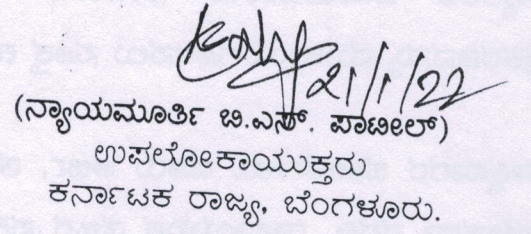 21/1/22
(ನ್ಯಾಯಮೂರ್ತಿ ಬಿ.ಎಸ್. ಪಾಟೀಲ್)
ಉಪಲೋಕಾಯುಕ್ತರು
ಕರ್ನಾಟಕ ರಾಜ್ಯ, ಬೆಂಗಳೂರು.